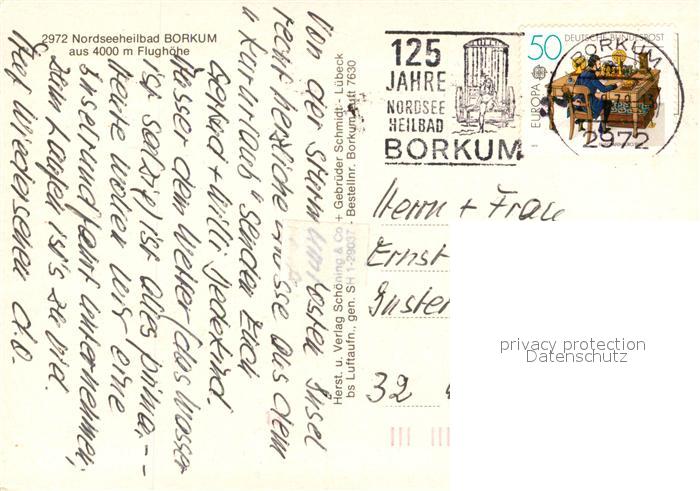 2972 Nordseeheilbad BORKUM
aus 4000 m Flughöhe
Von der Sturmumtosten Insel
recht herzliche Grüsse aus dem
"Kururlaub" senden Euch
Gerard + Willi
Ausser dem Wetter (das Wasser
ist salzig) ist alles prima. --
Heute wollen wir eine
Inselrundfahrt unternehmen,
zum Laufen ist's zu viel.
Auf Wiedersehen d.O.
Herst. u. Verlag Schöning & Co + Gebrüder Schmidt - Lübeck
bs Luftaufn., gen. SH 1-29037 - Bestellnr. Borkum Luft 7630
125
JAHRE
NORDSEE
HEILBAD
BORKUM
50
DEUTSCHE BUNDESPOST
EUROPA
BORKUM
2972
Herrn + Frau
Ernst
32
privacy protection
Datenschutz